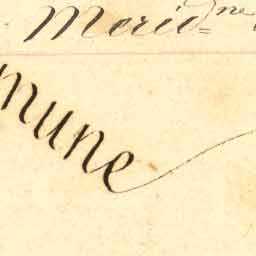 Merid=ne
mune